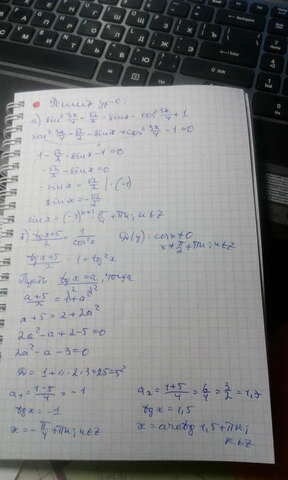 Решить ур-е:
а) sin² 3x/4 - √2/2 - sinx - cos² 3x/4 + 1
sin² 3x/4 - √2/2 - sinx + cos² 3x/4 - 1 = 0
1 - √2/2 - sinx - 1 = 0
-√2/2 - sinx = 0
-sinx = √2/2 | · (-1)
sinx = -√2/2
sinx = (-1)ⁿ⁺¹ π/4 + πn; n∈Z
(tgx+5)/2 = 1/cos²x D(y): cosx≠0
x≠π/2+πn; n∈Z
(tgx+5)/2 = 1 + tg²x
Пусть tgx = a, тогда
(a+5)/2 = 1 + a²
a + 5 = 2 + 2a²
2a² - a + 2 - 5 = 0
2a² - a - 3 = 0
D = 1 + 4 · 2 · 3 = 25 = 5²
a₁ = (1-5)/4 = -1 a₂ = (1+5)/4 = 6/4 = 3/2 =
tgx = -1 tgx = 1,5
x = -π/4 + πn; n∈Z x = arctg 1,5 + πn;
n∈Z